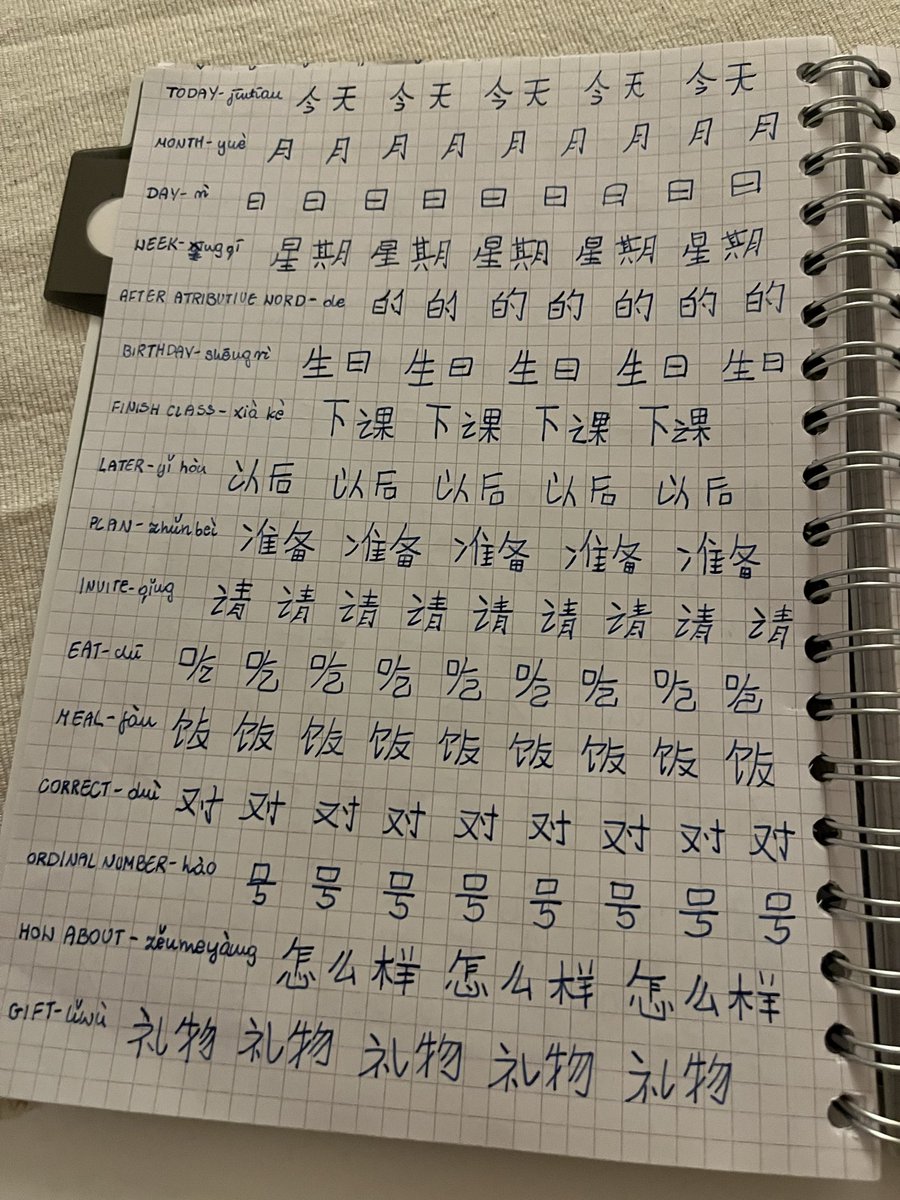 TODAY-jīntiān 今天 今天 今天 今天 今天
MONTH-yuè 月 月 月 月 月 月 月 月 月
DAY-rì 日 日 日 日 日 日 日 日 日
WEEK-xīngqī 星期 星期 星期 星期 星期
AFTER ATRIBUTIVE WORD-de 的 的 的 的 的 的 的
BIRTHDAY-shēngrì 生日 生日 生日 生日 生日
FINISH CLASS-xià kè 下课 下课 下课 下课
LATER-yǐ hòu 以后 以后 以后 以后 以后
PLAN-zhǔnbèi 准备 准备 准备 准备 准备
INVITE-qǐng 请 请 请 请 请 请 请 请 请
EAT-chī 吃 吃 吃 吃 吃 吃 吃 吃 吃
MEAL-fàn 饭 饭 饭 饭 饭 饭 饭 饭 饭
CORRECT-duì 对 对 对 对 对 对 对 对 对
ORDINAL NUMBER-hào 号 号 号 号 号 号 号 号 号
HOW ABOUT-zěnmeyàng 怎么样 怎么样 怎么样
GIFT-lǐwù 礼物 礼物 礼物 礼物 礼物